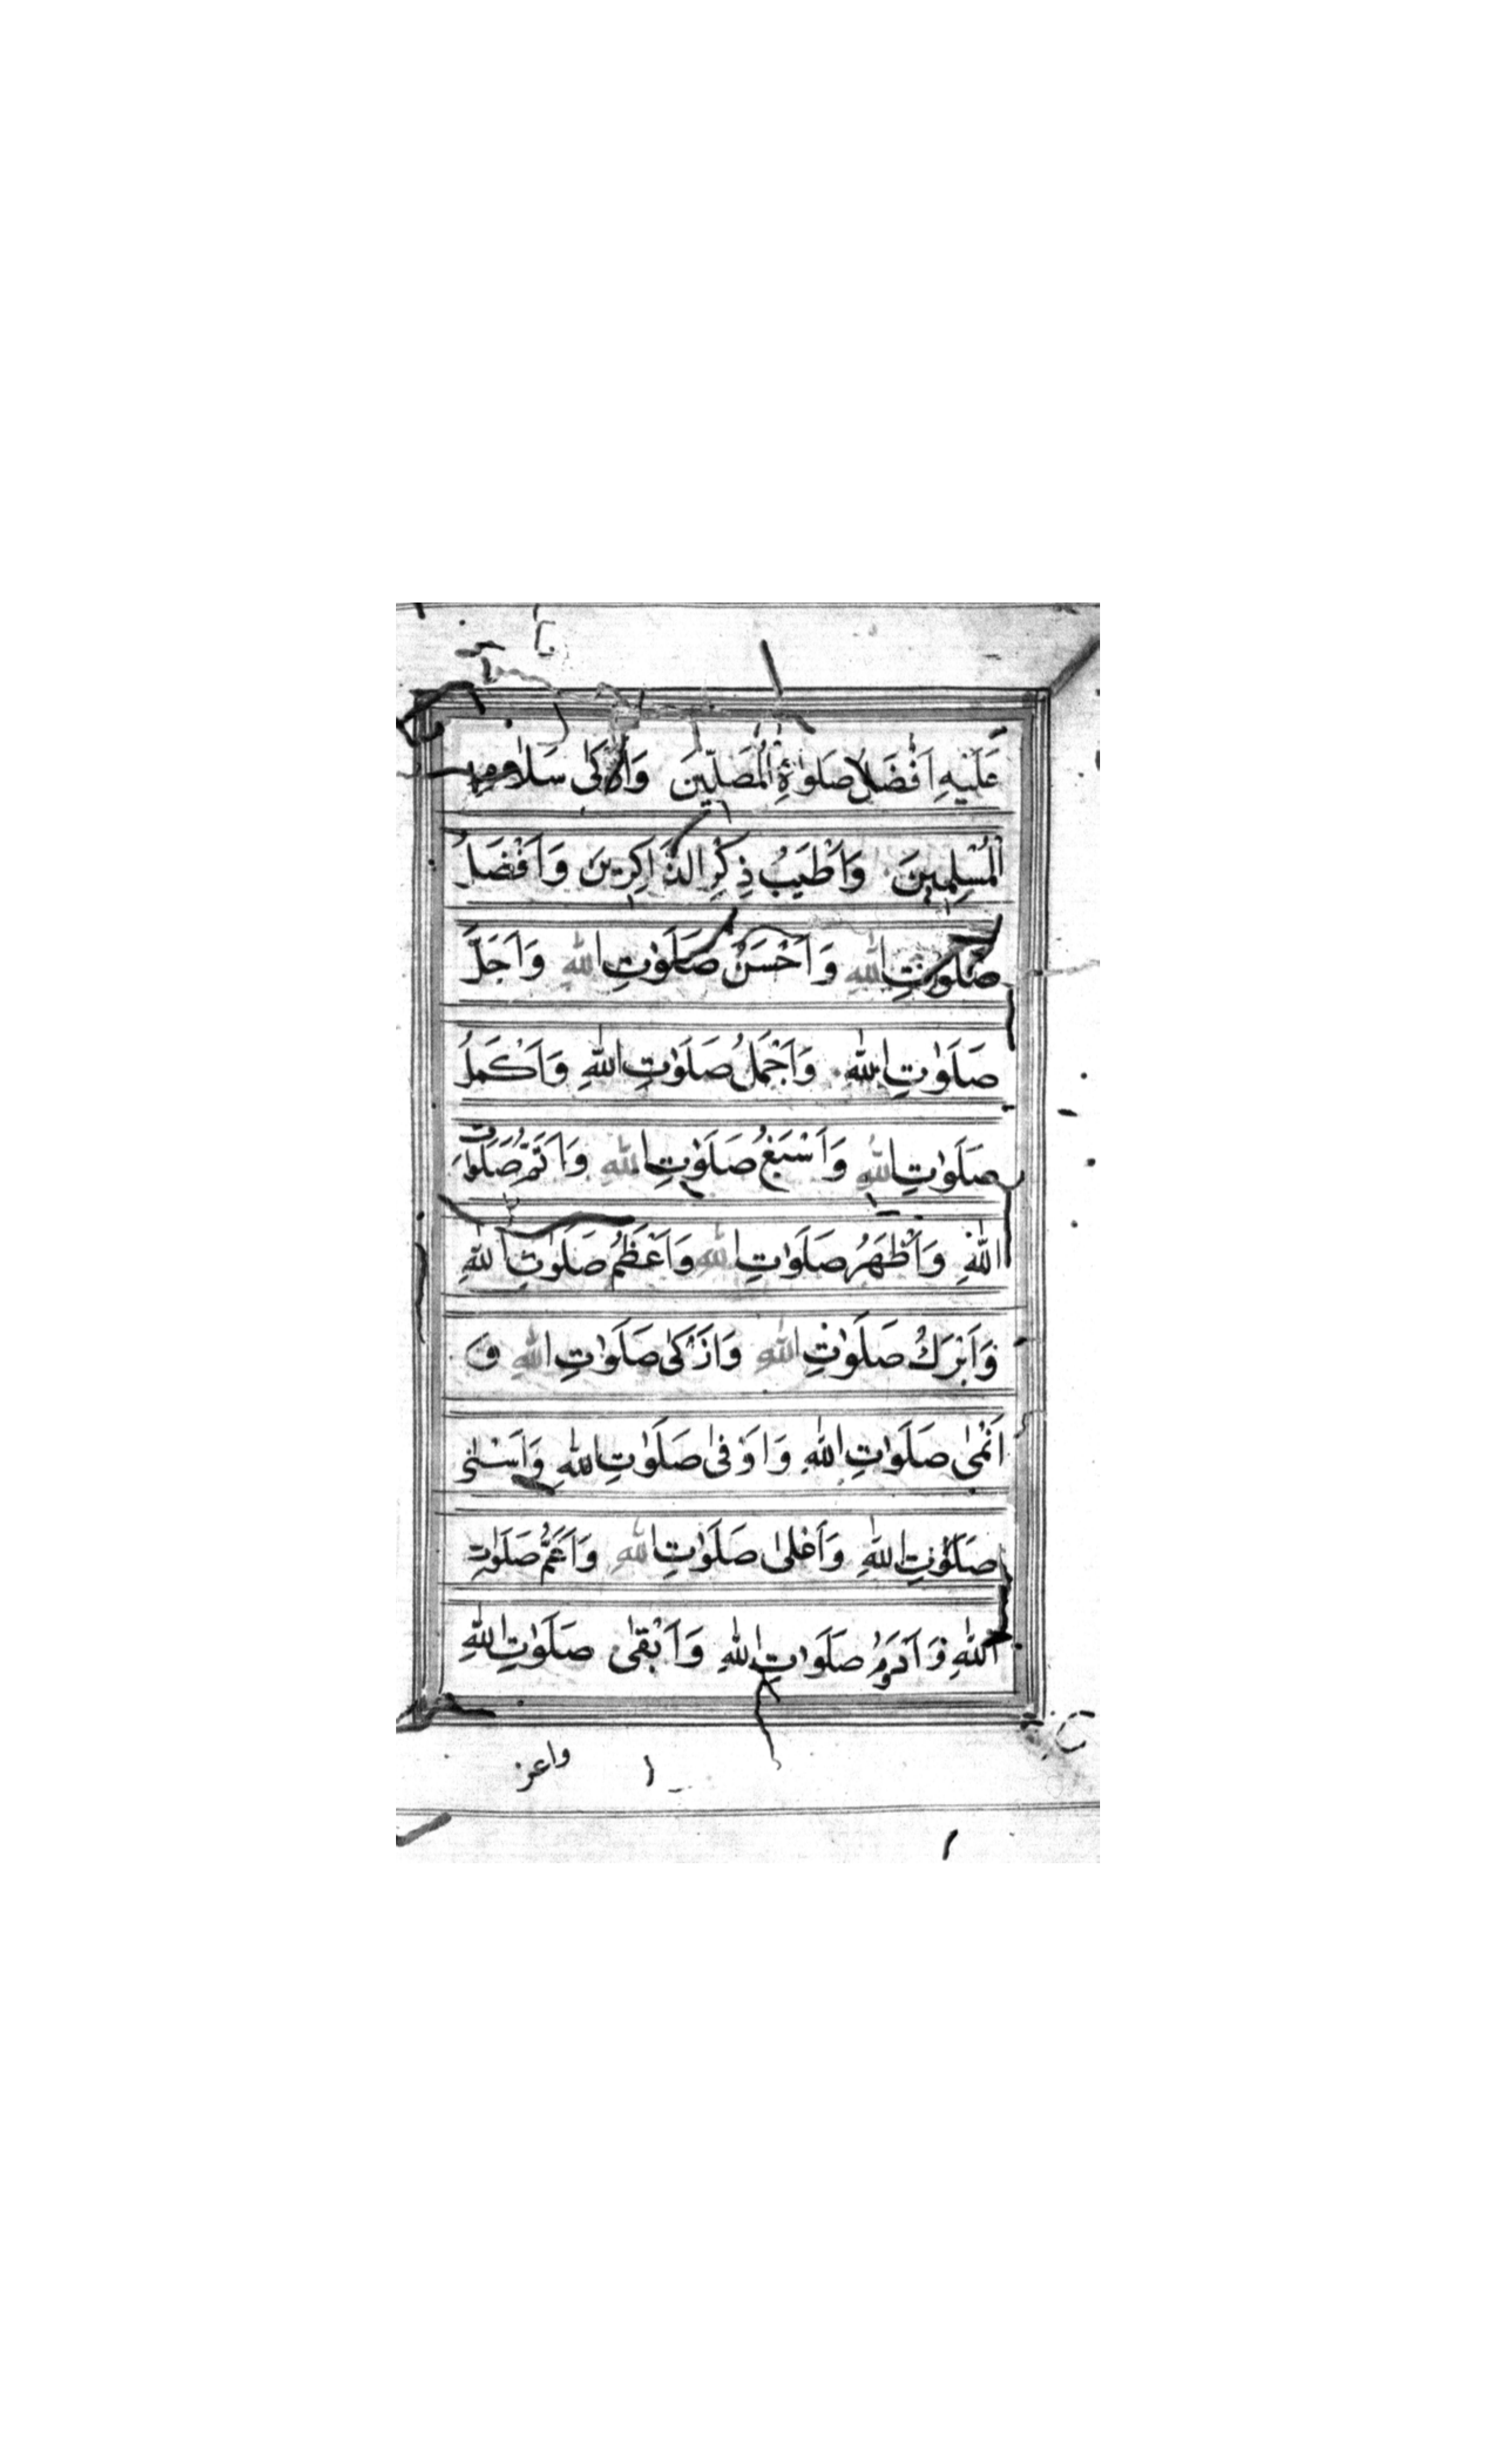 عَلَيْهِ اَفْضَلُ صَلوٰةِ الْمُصَلِّيْنَ وَاَزْكٰى سَلَامِ
الْمُسْلِمِيْنَ وَاَطْيَبُ ذِكْرِ الذَّاكِرِيْنَ وَاَفْضَلُ
صَلَوٰتِ اللّٰهِ وَاَحْسَنُ صَلَوٰتِ اللّٰهِ وَاَجَلُّ
صَلَوٰتِ اللّٰهِ وَاَجْمَلُ صَلَوٰتِ اللّٰهِ وَاَكْمَلُ
صَلَوٰتِ اللّٰهِ وَاَسْبَغُ صَلَوٰتِ اللّٰهِ وَاَتَمُّ صَلَوٰتِ
اللّٰهِ وَاَظْهَرُ صَلَوٰتِ اللّٰهِ وَاَعْظَمُ صَلَوٰتِ اللّٰهِ
وَاَبْرَكُ صَلَوٰتِ اللّٰهِ وَاَزْكٰى صَلَوٰتِ اللّٰهِ وَ
اَنْمٰى صَلَوٰتِ اللّٰهِ وَاَوْفٰى صَلَوٰتِ اللّٰهِ وَاَسْنٰى
صَلَوٰتِ اللّٰهِ وَاَعْلٰى صَلَوٰتِ اللّٰهِ وَاَعَمُّ صَلَوٰتِ
اللّٰهِ وَاَدْوَمُ صَلَوٰتِ اللّٰهِ وَاَبْقٰى صَلَوٰتِ اللّٰهِ
واعز